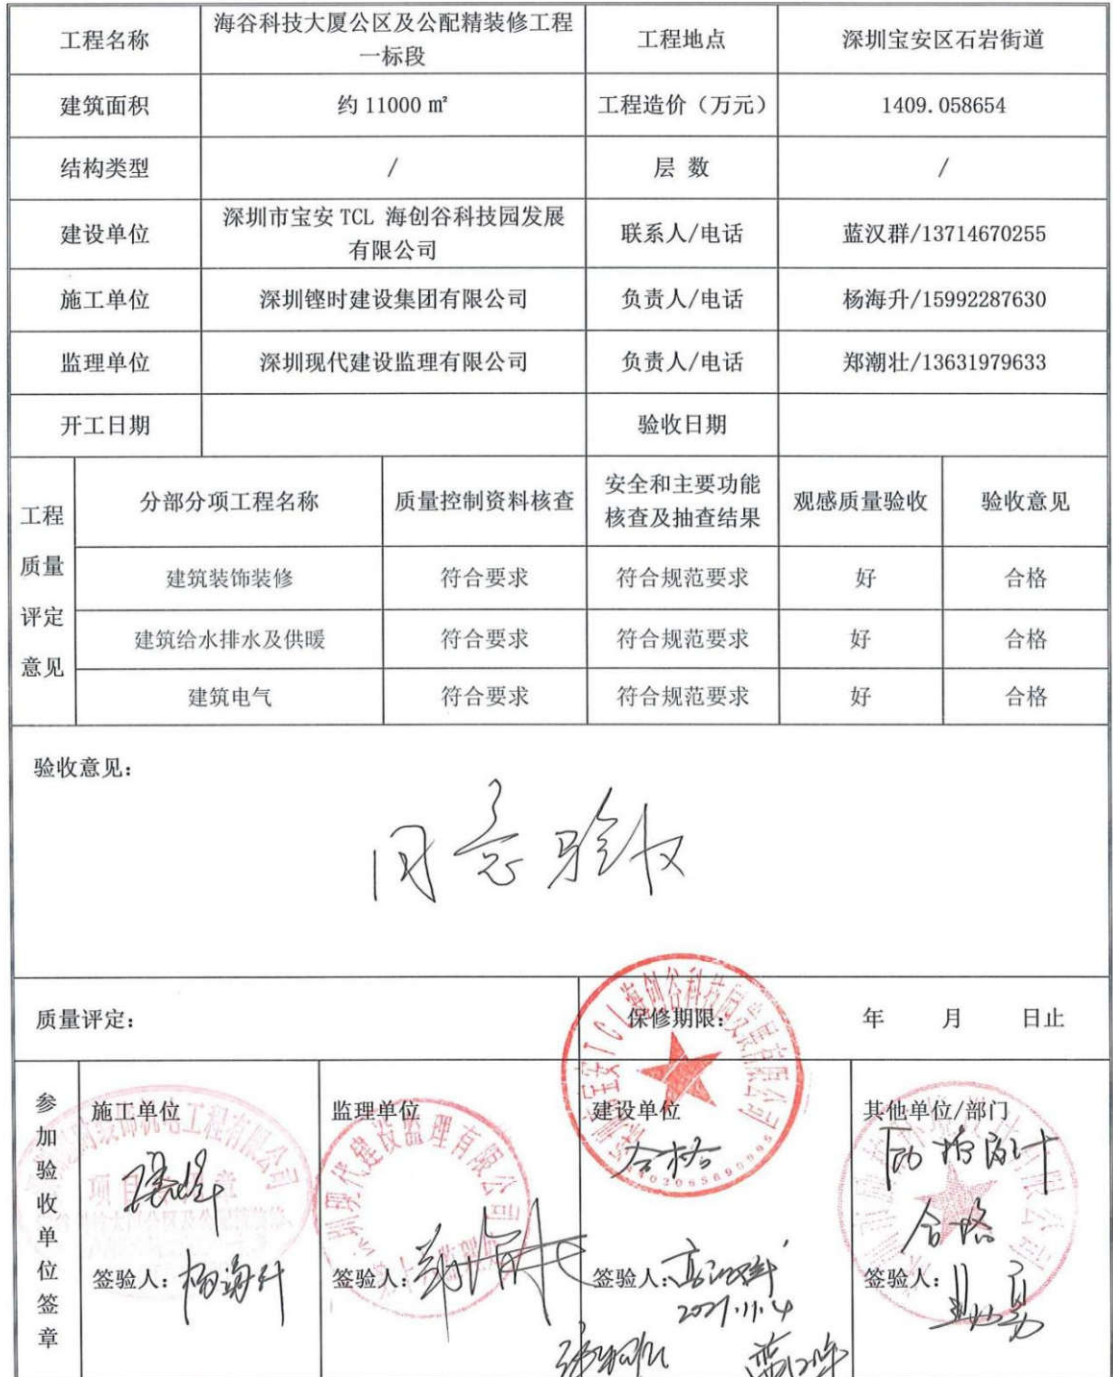 工程名称
海谷科技大厦公区及公配精装修工程
一标段
工程地点
深圳宝安区石岩街道
建筑面积
约 11000 ㎡
工程造价（万元）
1409.058654
结构类型
/
层 数
/
建设单位
深圳市宝安 TCL 海创谷科技园发展
有限公司
联系人/电话
蓝汉群/13714670255
施工单位
深圳铿时建设集团有限公司
负责人/电话
杨海升/15992287630
监理单位
深圳现代建设监理有限公司
负责人/电话
郑潮壮/13631979633
开工日期
验收日期
工程
质量
评定
意见
分部分项工程名称
质量控制资料核查
安全和主要功能
核查及抽查结果
观感质量验收
验收意见
建筑装饰装修
符合要求
符合规范要求
好
合格
建筑给水排水及供暖
符合要求
符合规范要求
好
合格
建筑电气
符合要求
符合规范要求
好
合格
验收意见：
同意验收
质量评定：
保修期限：
年 月 日止
参
加
验
收
单
位
签
章
施工单位
签验人：杨海升
监理单位
签验人：
建设单位
合格
签验人：
2021.11.4
其他单位/部门
合格
签验人：